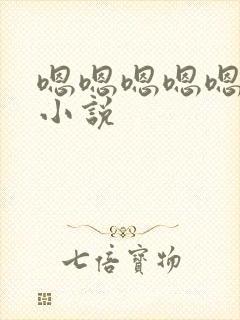 嗯嗯嗯嗯嗯
小説
七倍寶物